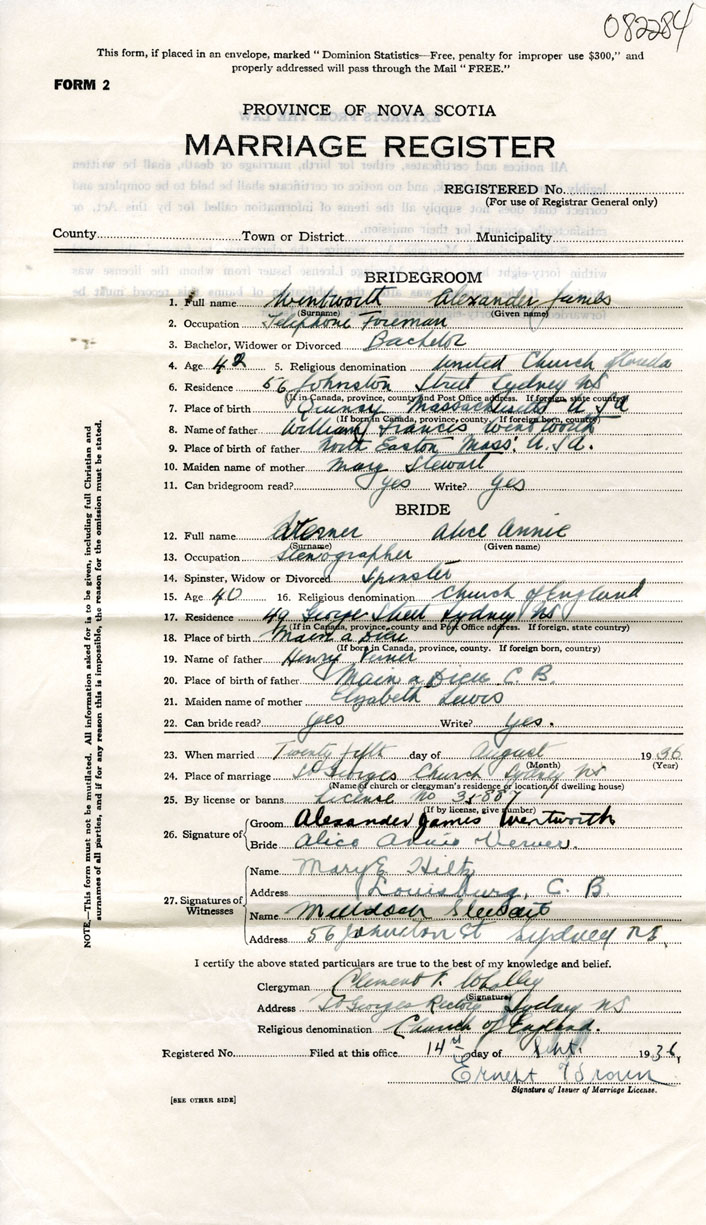 082284
This form, if placed in an envelope, marked "Dominion Statistics—Free, penalty for improper use $300," and
properly addressed will pass through the Mail "FREE."
FORM 2
PROVINCE OF NOVA SCOTIA
MARRIAGE REGISTER
REGISTERED No.
(For use of Registrar General only)
County Town or District Municipality
BRIDEGROOM
1. Full name Wentworth Alexander James
(Surname) (Given name)
2. Occupation Telephone Foreman
3. Bachelor, Widower or Divorced Bachelor
4. Age 42 5. Religious denomination United Church
6. Residence 56 Johnston Street Sydney NS
(If in Canada, province, county and Post Office address. If foreign, state country)
7. Place of birth Quincy Massachusetts U.S.A
(If born in Canada, province, county. If foreign born, country)
8. Name of father William Francis Wentworth
9. Place of birth of father North Easton Mass. U.S.A.
10. Maiden name of mother Mary Stewart
11. Can bridegroom read? yes Write? yes
BRIDE
12. Full name Verner Alice Annie
(Surname) (Given name)
13. Occupation Stenographer
14. Spinster, Widow or Divorced Spinster
15. Age 40 16. Religious denomination Church of England
17. Residence 49 George Street Sydney NS
(If in Canada, province, county and Post Office address. If foreign, state country)
18. Place of birth Main a Dieu
(If born in Canada, province, county. If foreign born, country)
19. Name of father Henry Verner
20. Place of birth of father Main a Dieu C. B.
21. Maiden name of mother Elizabeth Lewis
22. Can bride read? yes Write? yes.
23. When married Twenty fifth day of August 1936
(Month) (Year)
24. Place of marriage St Georges Church Sydney NS
(Name of church or clergyman's residence or location of dwelling house)
25. By license or banns License No 35887
(If by license, give number)
26. Signature of
Groom Alexander James Wentworth
Bride Alice Annie Verner.
27. Signatures of Witnesses
Name Mary E. Hiltz
Address Louisburg, C. B.
Name Murdoch Stewart
Address 56 Johnston St Sydney NS.
I certify the above stated particulars are true to the best of my knowledge and belief.
Clergyman Clement F. Whalley
(Signature)
Address St Georges Rectory Sydney NS
Religious denomination Church of England.
Registered No. Filed at this office 14 day of Sept. 1936,
Ernest Brown
Signature of Issuer of Marriage License.
[SEE OTHER SIDE]
NOTE.—This form must not be mutilated. All information asked for is to be given, including full Christian and
surnames of all parties, and if for any reason this is impossible, the reason for the omission must be stated.